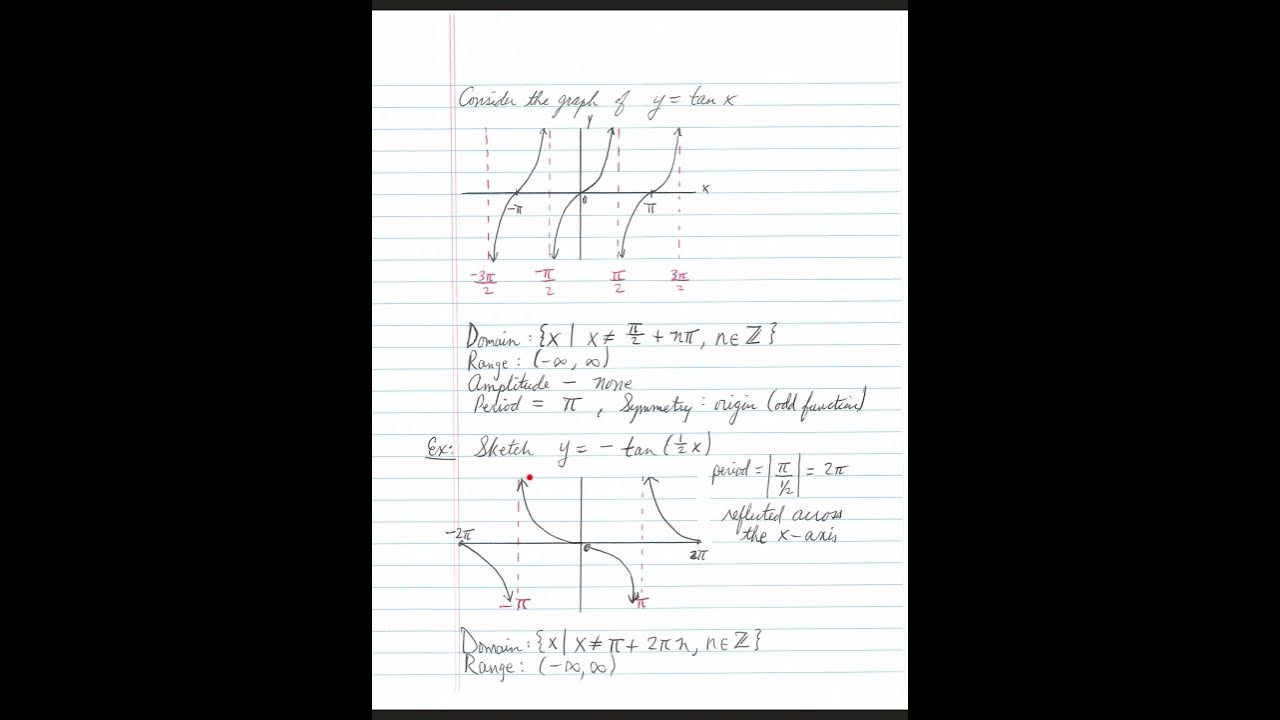 Consider the graph of y = tan x
y
x
-π
0
π
-3π/2
-π/2
π/2
3π/2
Domain : {x | x ≠ π/2 + nπ, n ∈ ℤ}
Range : (-∞, ∞)
Amplitude - none
Period = π , Symmetry : origin (odd function)
Ex: Sketch y = - tan (1/2 x)
period = |π/1/2| = 2π
reflected across
the x-axis
-2π
0
2π
-π
π
Domain : {x | x ≠ π + 2πn, n ∈ ℤ}
Range : (-∞, ∞)